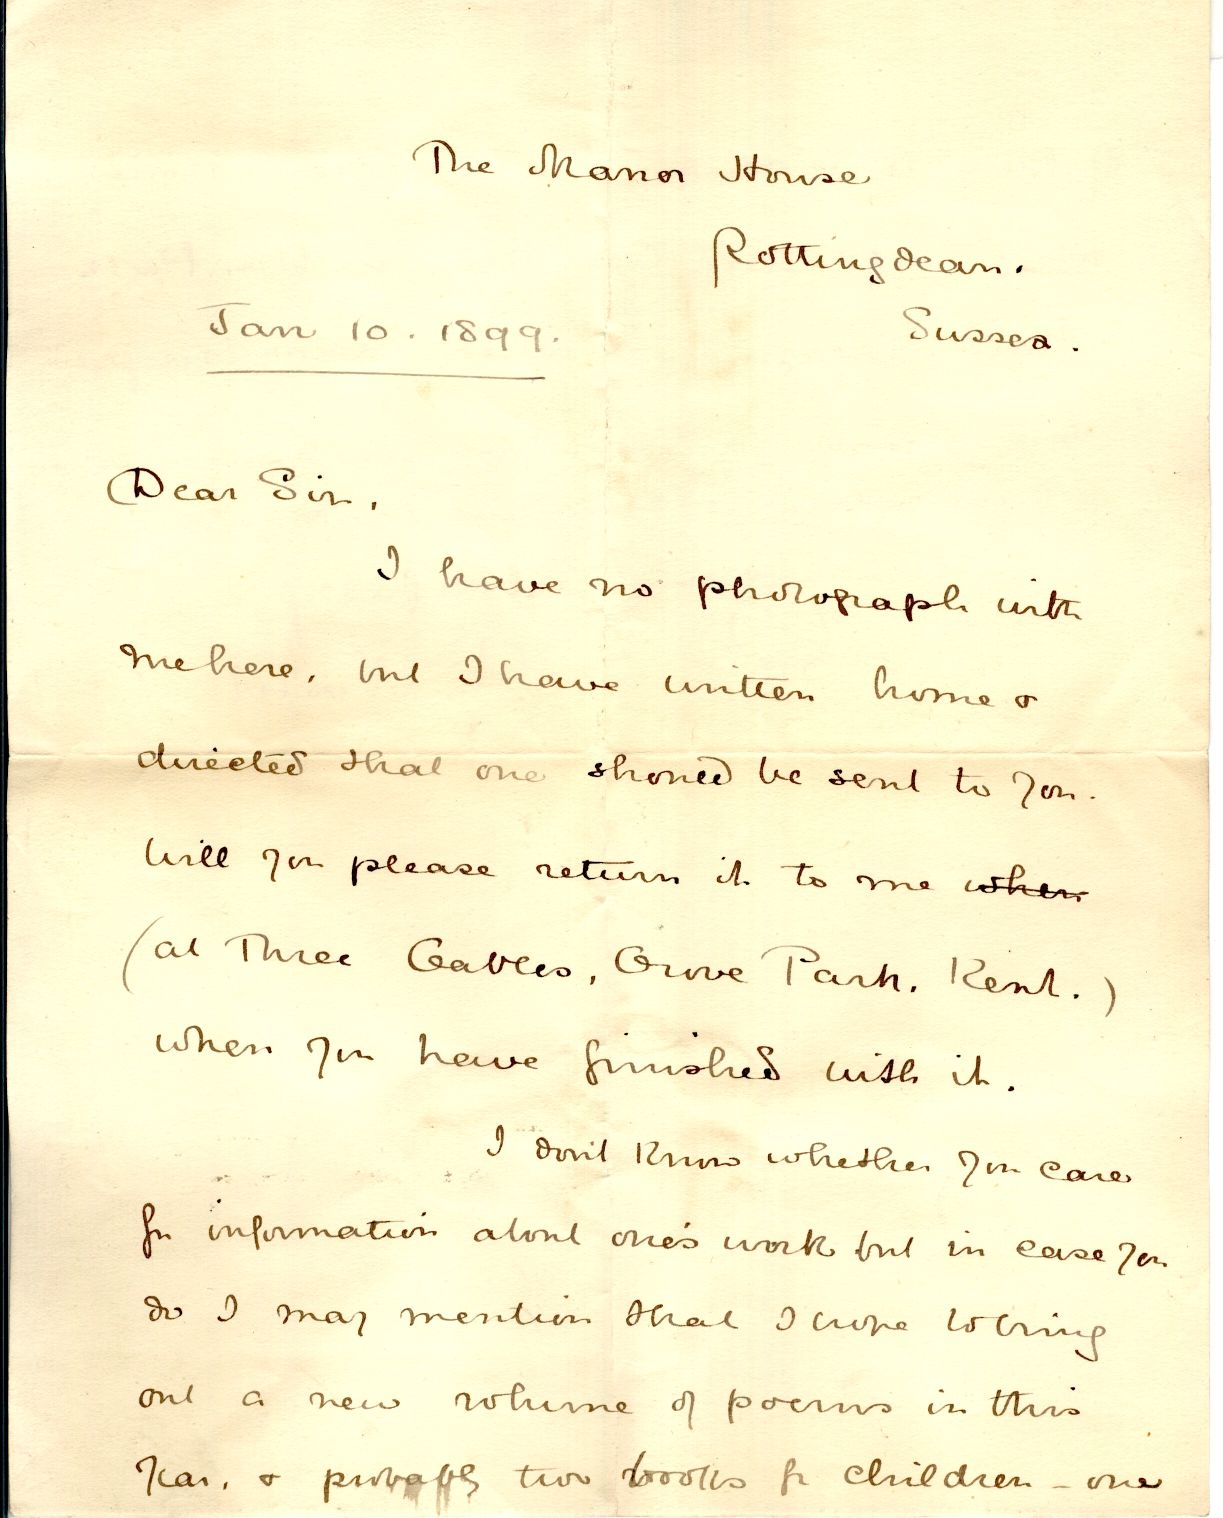 The Manor House
Rottingdean.
Sussex.
Jan 10. 1899.
Dear Sir,
I have no photograph with
me here, but I have written home &
directed that one should be sent to you.
Will you please return it to me when
(at Three Gables, Grove Park, Kent.)
when you have finished with it.
I don't know whether you care
for information about one's work but in case you
do I may mention that I hope to bring
out a new volume of poems in this
year, & probably two books for children - one